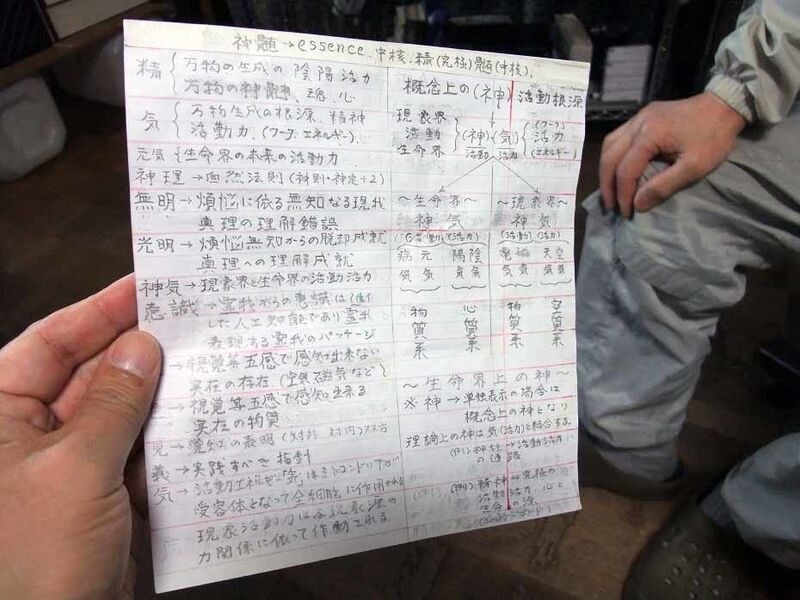 神髄→essence.中核.精(究極)髄(中核).
精 万物の生成の陰陽活力
万物の神髄、魂、心
気 万物生成の根源、精神
活動力、(ワーク、エネルギー)
元気 生命界の本来の活動力
神理→自然法則
無明→煩悩に依る無知なる現われ
真理の理解錯誤
光明→煩悩無知からの脱却成就
真理への理解成就
神気→現象界と生命界の活動活力
意識→
した人工知能であり
表現する のパッケージ
→視覚等五感で感知出来ない
実在の存在(空気磁気など)
→視覚等五感で感知出来る
実在の物質
見→ の表明(対外、対内)双方
義→実践すべき指針
気→活動エネルギー「気」はミトコンドリアが
受容体となって全細胞に作用される
現象活動力は各現象源の
力関係に依って作動される
概念上の(神)活動根源
現象界
活動
生命界
(神)(気)
活動 活力
(ワーク)
活力
(エネルギー)
~生命界~
神 気
(活動)(活力)
病 元 陽 陰
気 気 気 気
物 心
質 質
系 系
~現象界~
神 気
(活動)(活力)
電 磁 天 空
気 気 気 気
物 空
質 質
系 系
~生命界上の神~
※神→単独表示の場合は
概念上の神となり
理論上の神は気(活力)と結合する。
(例)神経→活動活力
の通路
(例)精神 究極の
活動活力 心と
生命の源